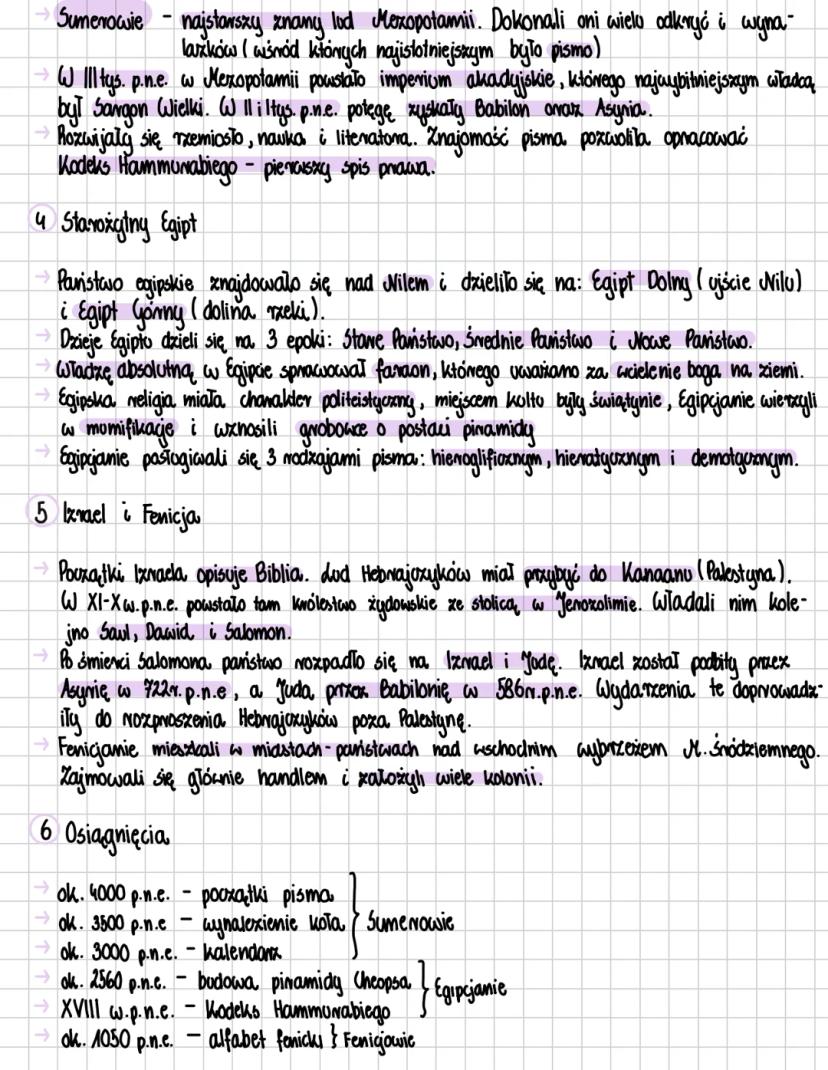 → Sumerowie - najstarszy znany lud Mezopotamii. Dokonali oni wielu odkryć i wyna-
lazków (wśród których najistotniejszym było pismo)
→ W III tys. p.n.e. w Mezopotamii powstało imperium akadyjskie, którego najwybitniejszym władcą
był Sargon Wielki. W II i I tys. p.n.e. potęgę zyskały Babilon oraz Asyria.
→ Rozwijały się rzemiosło, nauka i literatura. Znajomość pisma pozwoliła opracować
Kodeks Hammurabiego - pierwszy spis prawa.
4 Starożytny Egipt
→ Państwo egipskie znajdowało się nad Nilem i dzieliło się na: Egipt Dolny (ujście Nilu)
i Egipt Górny (dolina rzeki).
→ Dzieje Egiptu dzieli się na 3 epoki: Stare Państwo, Średnie Państwo i Nowe Państwo.
→ Władzę absolutną w Egipcie sprawował faraon, którego uważano za wcielenie boga na ziemi.
→ Egipska religia miała charakter politeistyczny, miejscem kultu były świątynie, Egipcjanie wierzyli
w mumifikację i wznosili grobowce o postaci piramidy
→ Egipcjanie posługiwali się 3 rodzajami pisma: hieroglificznym, hieratycznym i demotycznym.
5 Izrael i Fenicja
→ Początki Izraela opisuje Biblia. Lud Hebrajczyków miał przybyć do Kanaanu (Palestyna).
W XI-X w. p.n.e. powstało tam królestwo żydowskie ze stolicą w Jerozolimie. Władali nim kole-
jno Saul, Dawid i Salomon.
→ Po śmierci Salomona państwo rozpadło się na Izrael i Judę. Izrael został podbity przez
Asyrię w 722r. p.n.e, a Juda przez Babilonię w 586r.p.n.e. Wydarzenia te doprowadz-
iły do rozproszenia Hebrajczyków poza Palestynę.
→ Fenicjanie mieszkali w miastach-państwach nad wschodnim wybrzeżem M. Śródziemnego.
Zajmowali się głównie handlem i założyli wiele kolonii.
6 Osiągnięcia
→ ok. 4000 p.n.e. - początki pisma
→ ok. 3500 p.n.e - wynalezienie koła } Sumerowie
→ ok. 3000 p.n.e. - kalendarz
→ ok. 2560 p.n.e. - budowa piramidy Cheopsa } Egipcjanie
→ XVIII w.p.n.e. - Kodeks Hammurabiego
→ ok. 1050 p.n.e. - alfabet fenicki } Fenicjowie